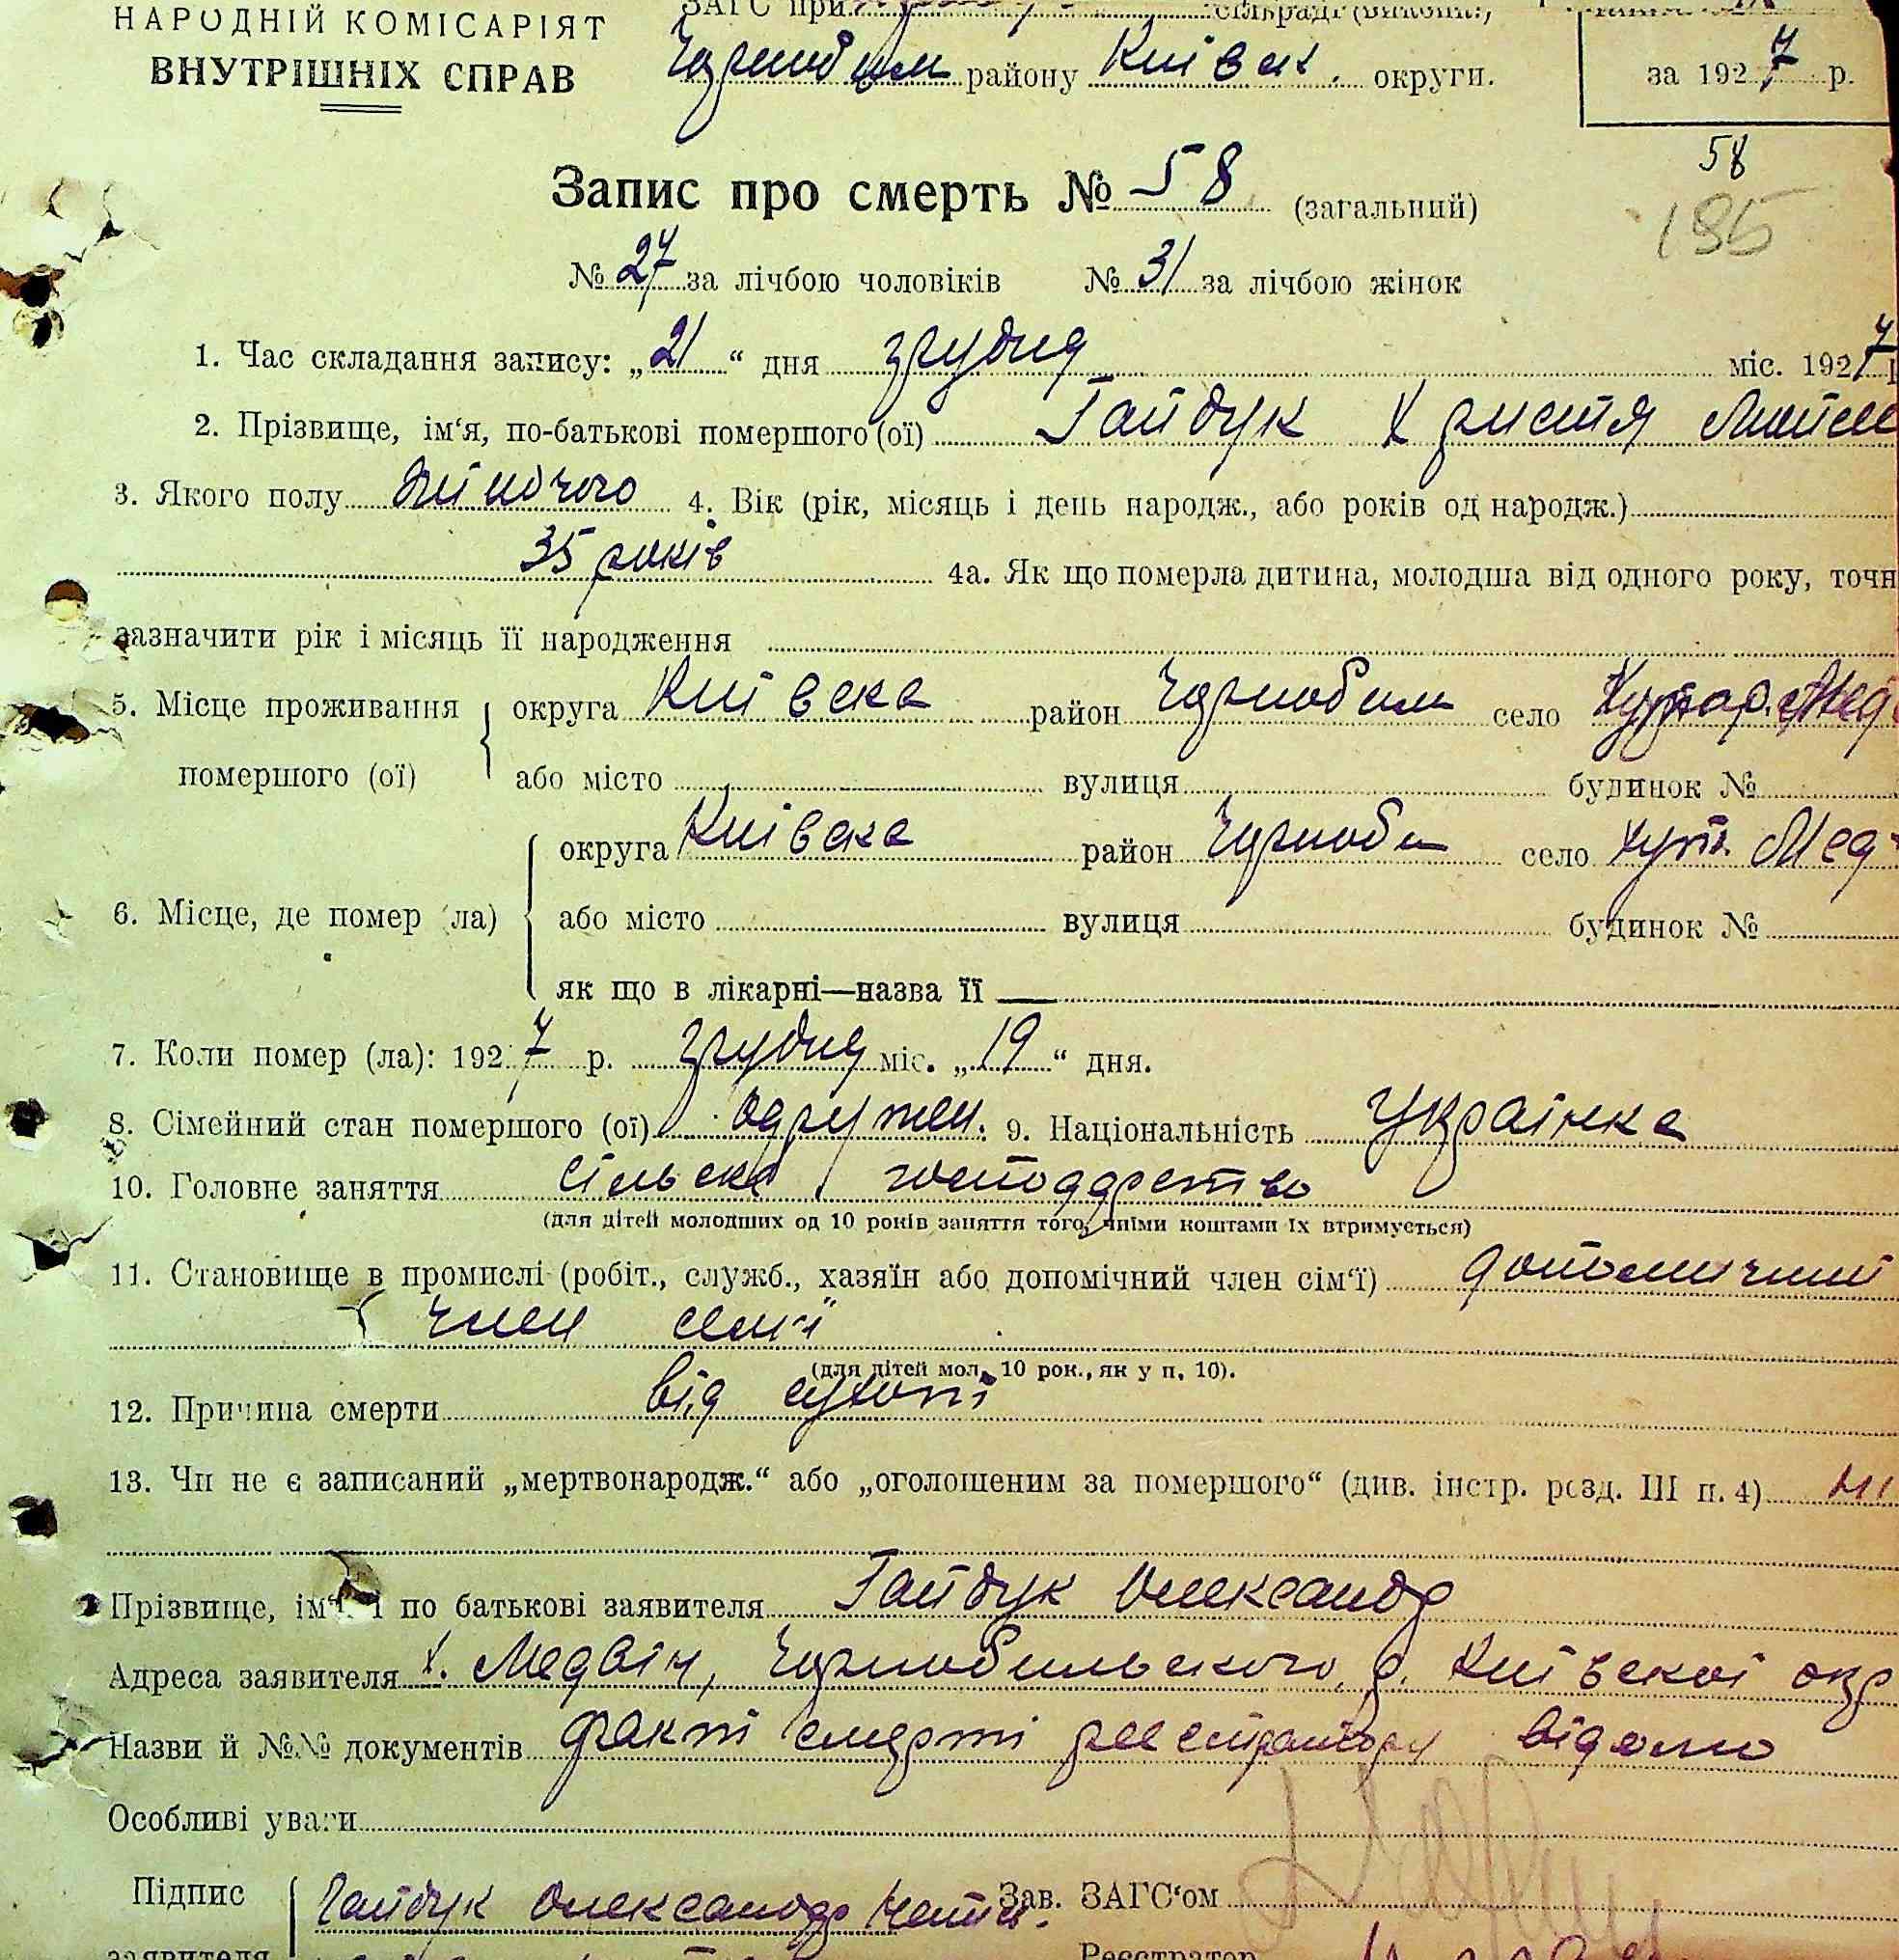 НАРОДНІЙ КОМІСАРІЯТ
ВНУТРІШНІХ СПРАВ
ЗАГС при сільраді
Чорнобил району Київськ. округи.
за 1927 р.
58
185
Запис про смерть № 58 (загальний)
№ 27 за лічбою чоловіків № 31 за лічбою жінок
1. Час складання запису: „21“ дня грудня міс. 1927
2. Прізвище, ім‘я, по-батькові помершого (ої) Гайдук Христя
3. Якого полу жіночого 4. Вік (рік, місяць і день народж., або років од народж.)
35 років 4а. Як що померла дитина, молодша від одного року, точн
зазначити рік і місяць її народження
5. Місце проживання помершого (ої) округа Київська район Чорнобил село Хутор. Мед
або місто вулиця будинок №
6. Місце, де помер (ла) округа Київська район Чорноби село Хут. Мед
або місто вулиця будинок №
як що в лікарні—назва її —
7. Коли помер (ла): 1927 р. грудня міс. „19“ дня.
8. Сімейний стан помершого (ої) одружен. 9. Національність Українка
10. Головне заняття сільске господарство
(для дітей молодших од 10 років заняття того, чиїми коштами їх втримується)
11. Становище в промислі (робіт., служб., хазяїн або допомічний член сім‘ї) допомичний
член семї
(для дітей мол. 10 рок., як у п. 10).
12. Причина смерти від сухот
13. Чи не є записаний „мертвонародж.“ або „оголошеним за помершого“ (див. інстр. розд. III п. 4) ні
Прізвище, ім‘я і по батькові заявителя Гайдук Олександр
Адреса заявителя х. Медвін, Чорнобильского р. Київскої окр
Назви й №№ документів факт смерті реєстратору відомо
Особливі уваги
Підпис заявителя Гайдук Олександр Зав. ЗАГС‘ом
Реєстратор